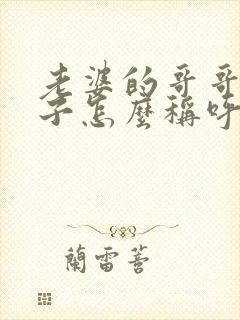 老婆的哥哥
子怎麼稱呼
蘭雷善